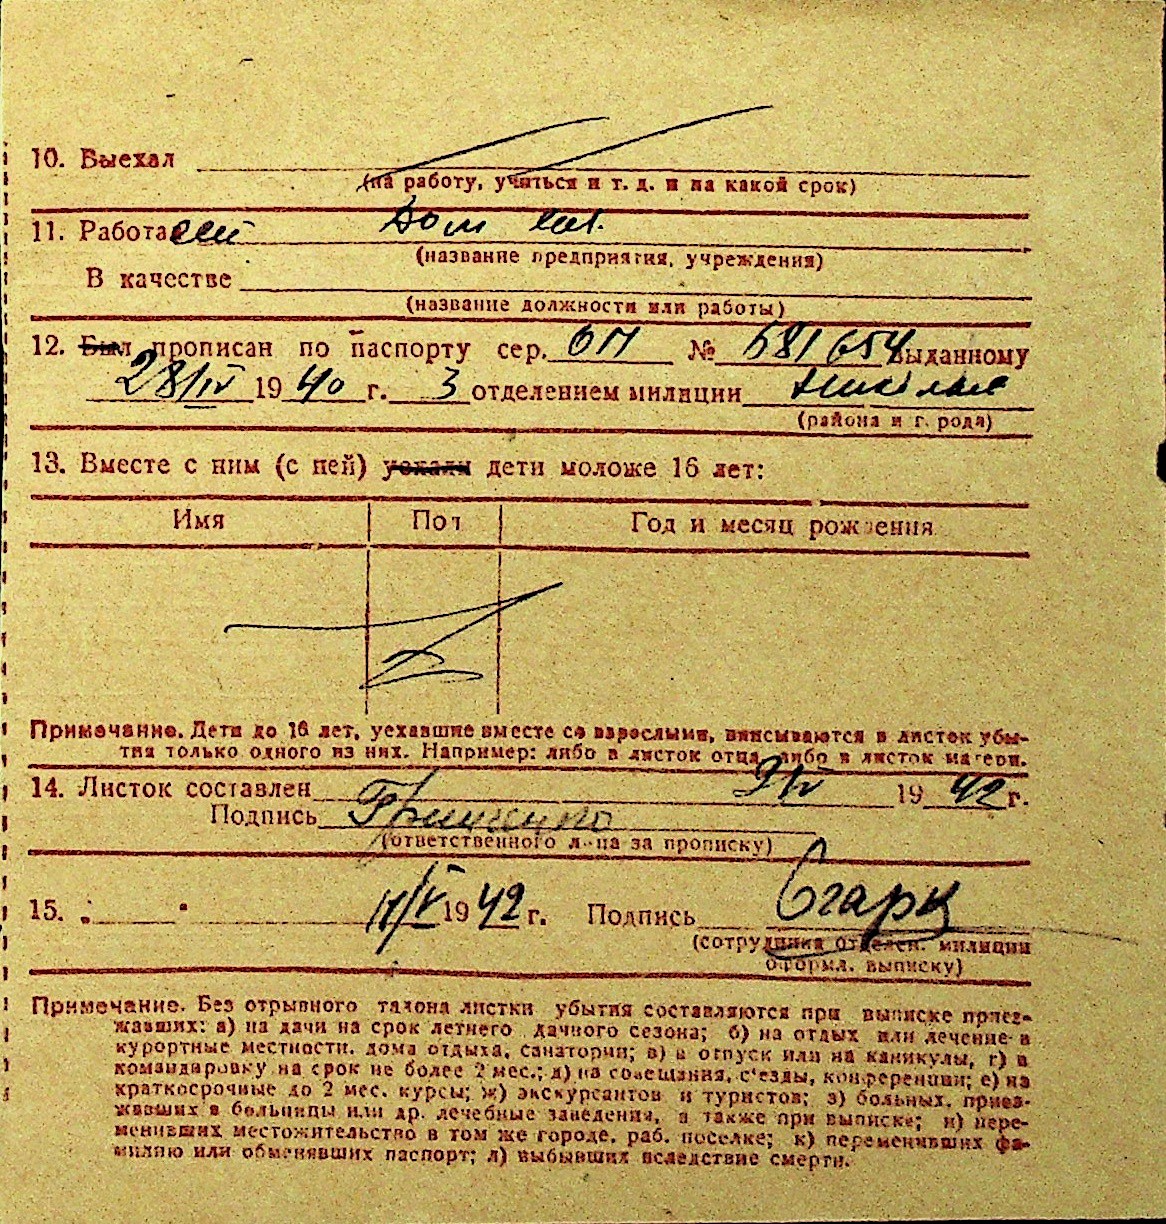 10. Выехал
(на работу, учиться и т. д. и на какой срок)
11. Работа Дом
(название предприятия, учреждения)
В качестве
(название должности или работы)
12. Был прописан по паспорту сер. ОП № 581654 выданному
28/IV 1940 г. 3 отделением милиции
(района и г. рода)
13. Вместе с ним (с ней) уехали дети моложе 16 лет:
Имя Пол Год и месяц рождения
Примечание. Дети до 16 лет, уехавшие вместе со взрослыми, вписываются в листок убы-
тия только одного из них. Например: либо в листок отца, либо в листок матери.
14. Листок составлен 9/IV 1942 г.
Подпись Гринченко
(ответственного лица за прописку)
15. 11/IV 1942 г. Подпись
(сотрудника отделен. милиции
оформл. выписку)
Примечание. Без отрывного талона листки убытия составляются при выписке приез-
жавших: а) на дачи на срок летнего дачного сезона; б) на отдых или лечение в
курортные местности, дома отдыха, санатории; в) в отпуск или на каникулы, г) в
командировку на срок не более 2 мес.; д) на совещания, с'езды, конференции; е) на
краткосрочные до 2 мес. курсы; ж) экскурсантов и туристов; з) больных, приез-
жавших в больницы или др. лечебные заведения, а также при выписке; и) пере-
менивших местожительство в том же городе, раб. поселке; к) переменивших фа-
милию или обменявших паспорт; л) выбывших вследствие смерти.